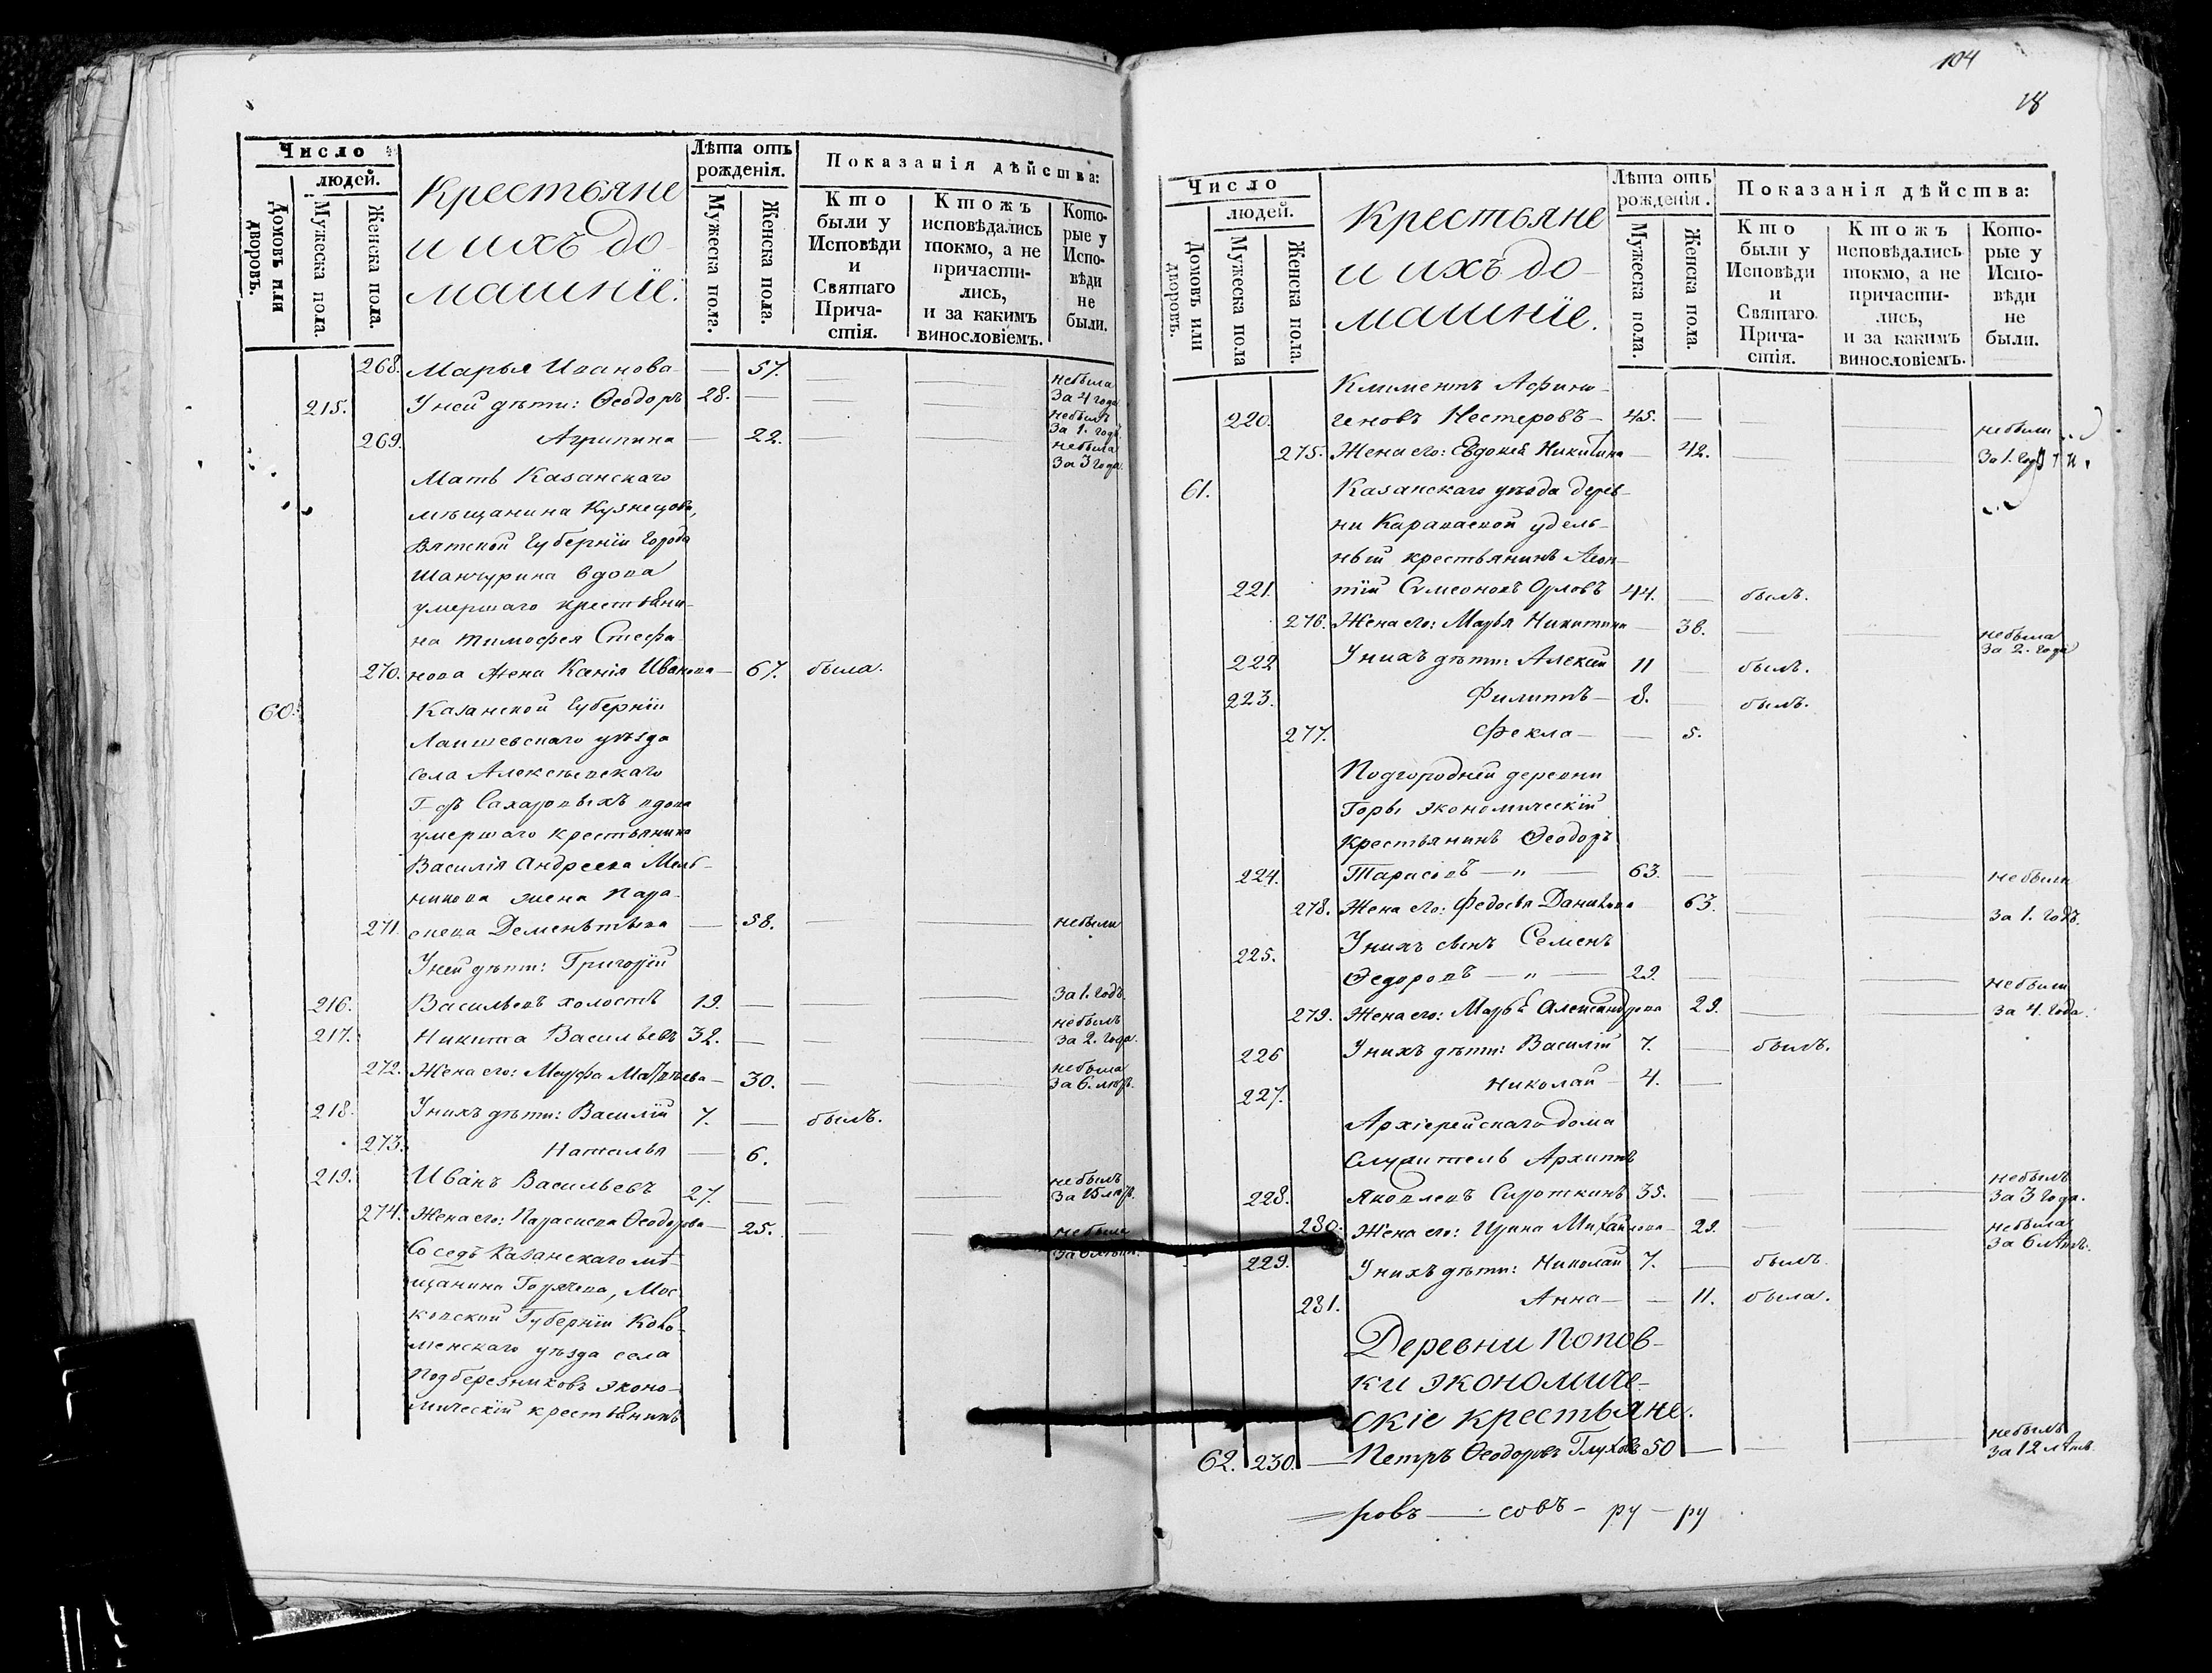 Число
людей.
Домовъ или дворовъ.
Мужеска пола.
Женска пола.
Крестьяне
и ихъ до-
машніе.
Лѣта отъ рожденія.
Мужеска пола.
Женска пола.
Показанія дѣйства:
Кто были у Исповѣди и Святаго Причастія.
Ктожъ исповѣдались токмо, а не причастились, и за какимъ винословіемъ.
Которые у Исповѣди не были.
268. Марья Иванова — 57. — — небыла за 4 года
215. У ней дѣти: Ѳеодоръ 28. — — — небылъ за 1. годъ.
269. Агрипина — 22. — — небыла за 3 года.
Мать Казанскаго
мѣщанина Кузнецова,
Вятской Губерніи города
Шанчурина вдова
умершаго крестьяни-
на Тимофея Стефа-
270. нова жена Ксенія Иванова — 67. была.
60. Казанской Губерніи
Лаишевскаго уѣзда
села Алексѣевскаго
Г-дъ Сахаровыхъ вдова
умершаго крестьянина
Василія Андреева Мель-
никова жена Пара-
271. скева Дементьева — 58. — — небыли
У ней дѣти: Григорій
216. Васильевъ холостъ 19. — — — за 1. годъ.
217. Никита Васильевъ 32. — — — небылъ за 2. года.
272. Жена его: Марфа Матвѣева — 30. — — небыла за 6. лѣтъ.
218. У нихъ дѣти: Василій 7. — былъ.
273. Наталья — 6.
219. Иванъ Васильевъ 27. — — небылъ за 15 лѣтъ.
274. Жена его: Параскева Ѳеодорова — 25. — — небыла
Соседъ Казанскаго мѣ-
щанина Горячева, Мос-
ковской Губерніи Коло-
менскаго уѣзда села
Подберезниковъ эконо-
мическій крестьянинъ
104
18
Число
людей.
Домовъ или дворовъ.
Мужеска пола
Женска пола.
Крестьяне
и ихъ до-
машніе.
Лѣта отъ рожденія.
Мужеска пола.
Женска пола.
Показанія дѣйства:
Кто были у Исповѣди и Святаго Причастія.
Ктожъ исповѣдались токмо, а не причастились, и за какимъ винословіемъ.
Которые у Исповѣди не были.
Климентъ Афино-
220. геновъ Нестеровъ — 45. — — — небыли
275. Жена его: Евдокія Никитина — 42. — — за 1. годъ
61. Казанскаго уѣзда дерев-
ни Караваевой удель-
ный крестьянинъ Леон-
221. тій Сѵмеоновъ Орловъ 44. — былъ.
276. Жена его: Марья Никитина — 38. — — небыла за 2. года
222 У нихъ дѣти: Алексій 11 — былъ.
223. Филиппъ — 8. — былъ.
277. Фекла — — 5.
Подгородней деревни
Горы экономическій
крестьянинъ Ѳеодоръ
224. Тарасовъ — „ — 63. — — — небыли
278. Жена его: Федосья Данилова 63. — — за 1. годъ.
У нихъ сынъ Семенъ
225. Ѳедоровъ — „ — 29. — — — небыли
279. Жена его: Марья Александрова 29. — — за 4. года.
226 У нихъ дѣти: Василій 7. — былъ.
227. Николай — 4. —
Архіерейскаго дома
служитель Архиппъ
228. Яковлевъ Сироткинъ 35. — — — небылъ за 3 года.
280. Жена его: Ирина Михайлова — 29. — — небыла за 6 лѣтъ.
229. У нихъ дѣти: Николай 7. — былъ.
281. Анна — — 11. была.
Деревни Попов-
ки экономиче-
скіе крестьяне.
62. 230. — Петръ Ѳеодоровъ Глуховъ 50 — — — небылъ за 12 лѣтъ.
ровъ — совъ — ру — ру